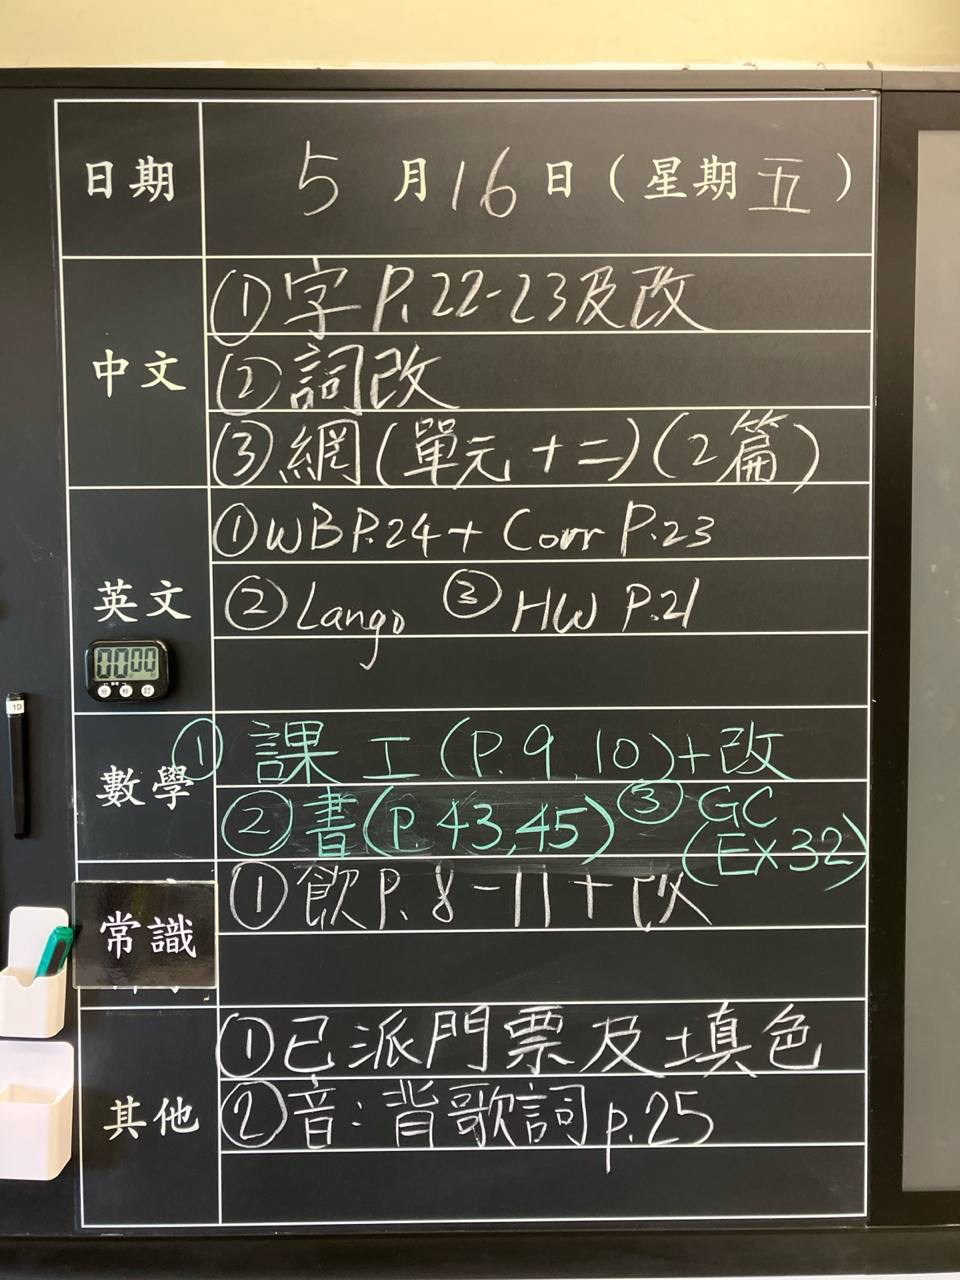 日期 5月16日(星期五)
中文
①字P.22-23及改
②詞改
③網(單元十二)(2篇)
英文
①WB P.24 + Corr P.23
②Lango ③HW P.21
00 00
分 秒
數學
①課工(P.9,10)+改
②書(P.43,45) ③GC
(Ex32)
常識
①飲P.8-11+改
其他
①已派門票及填色
②音:背歌詞p.25
1D